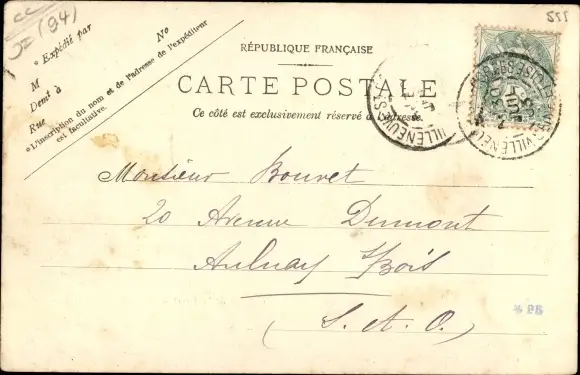 (94)
* Expédié par
No
M
Demt à
Rue
* L'inscription du nom et de l'adresse de l'expéditeur
est facultative.
RÉPUBLIQUE FRANÇAISE
CARTE POSTALE
Ce côté est exclusivement réservé à l'adresse.
Monsieur Bouret
20 Avenue Dumont
Aulnay s/ Bois
(S. et. O.)